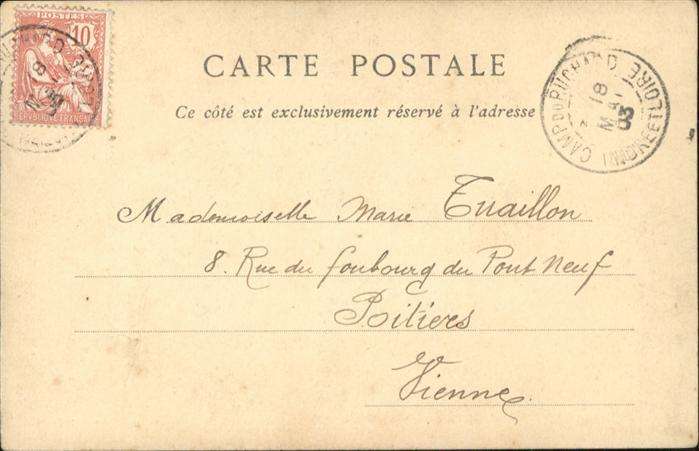 POSTES
10
REPUBLIQUE FRANÇAISE
CARTE POSTALE
Ce côté est exclusivement réservé à l'adresse
CAMP DU RUCHARD
INDRE ET LOIRE
18
MAI
03
Mademoiselle Marie Tuaillon
8. Rue du foubourg du Pont Neuf
Poitiers
Vienne